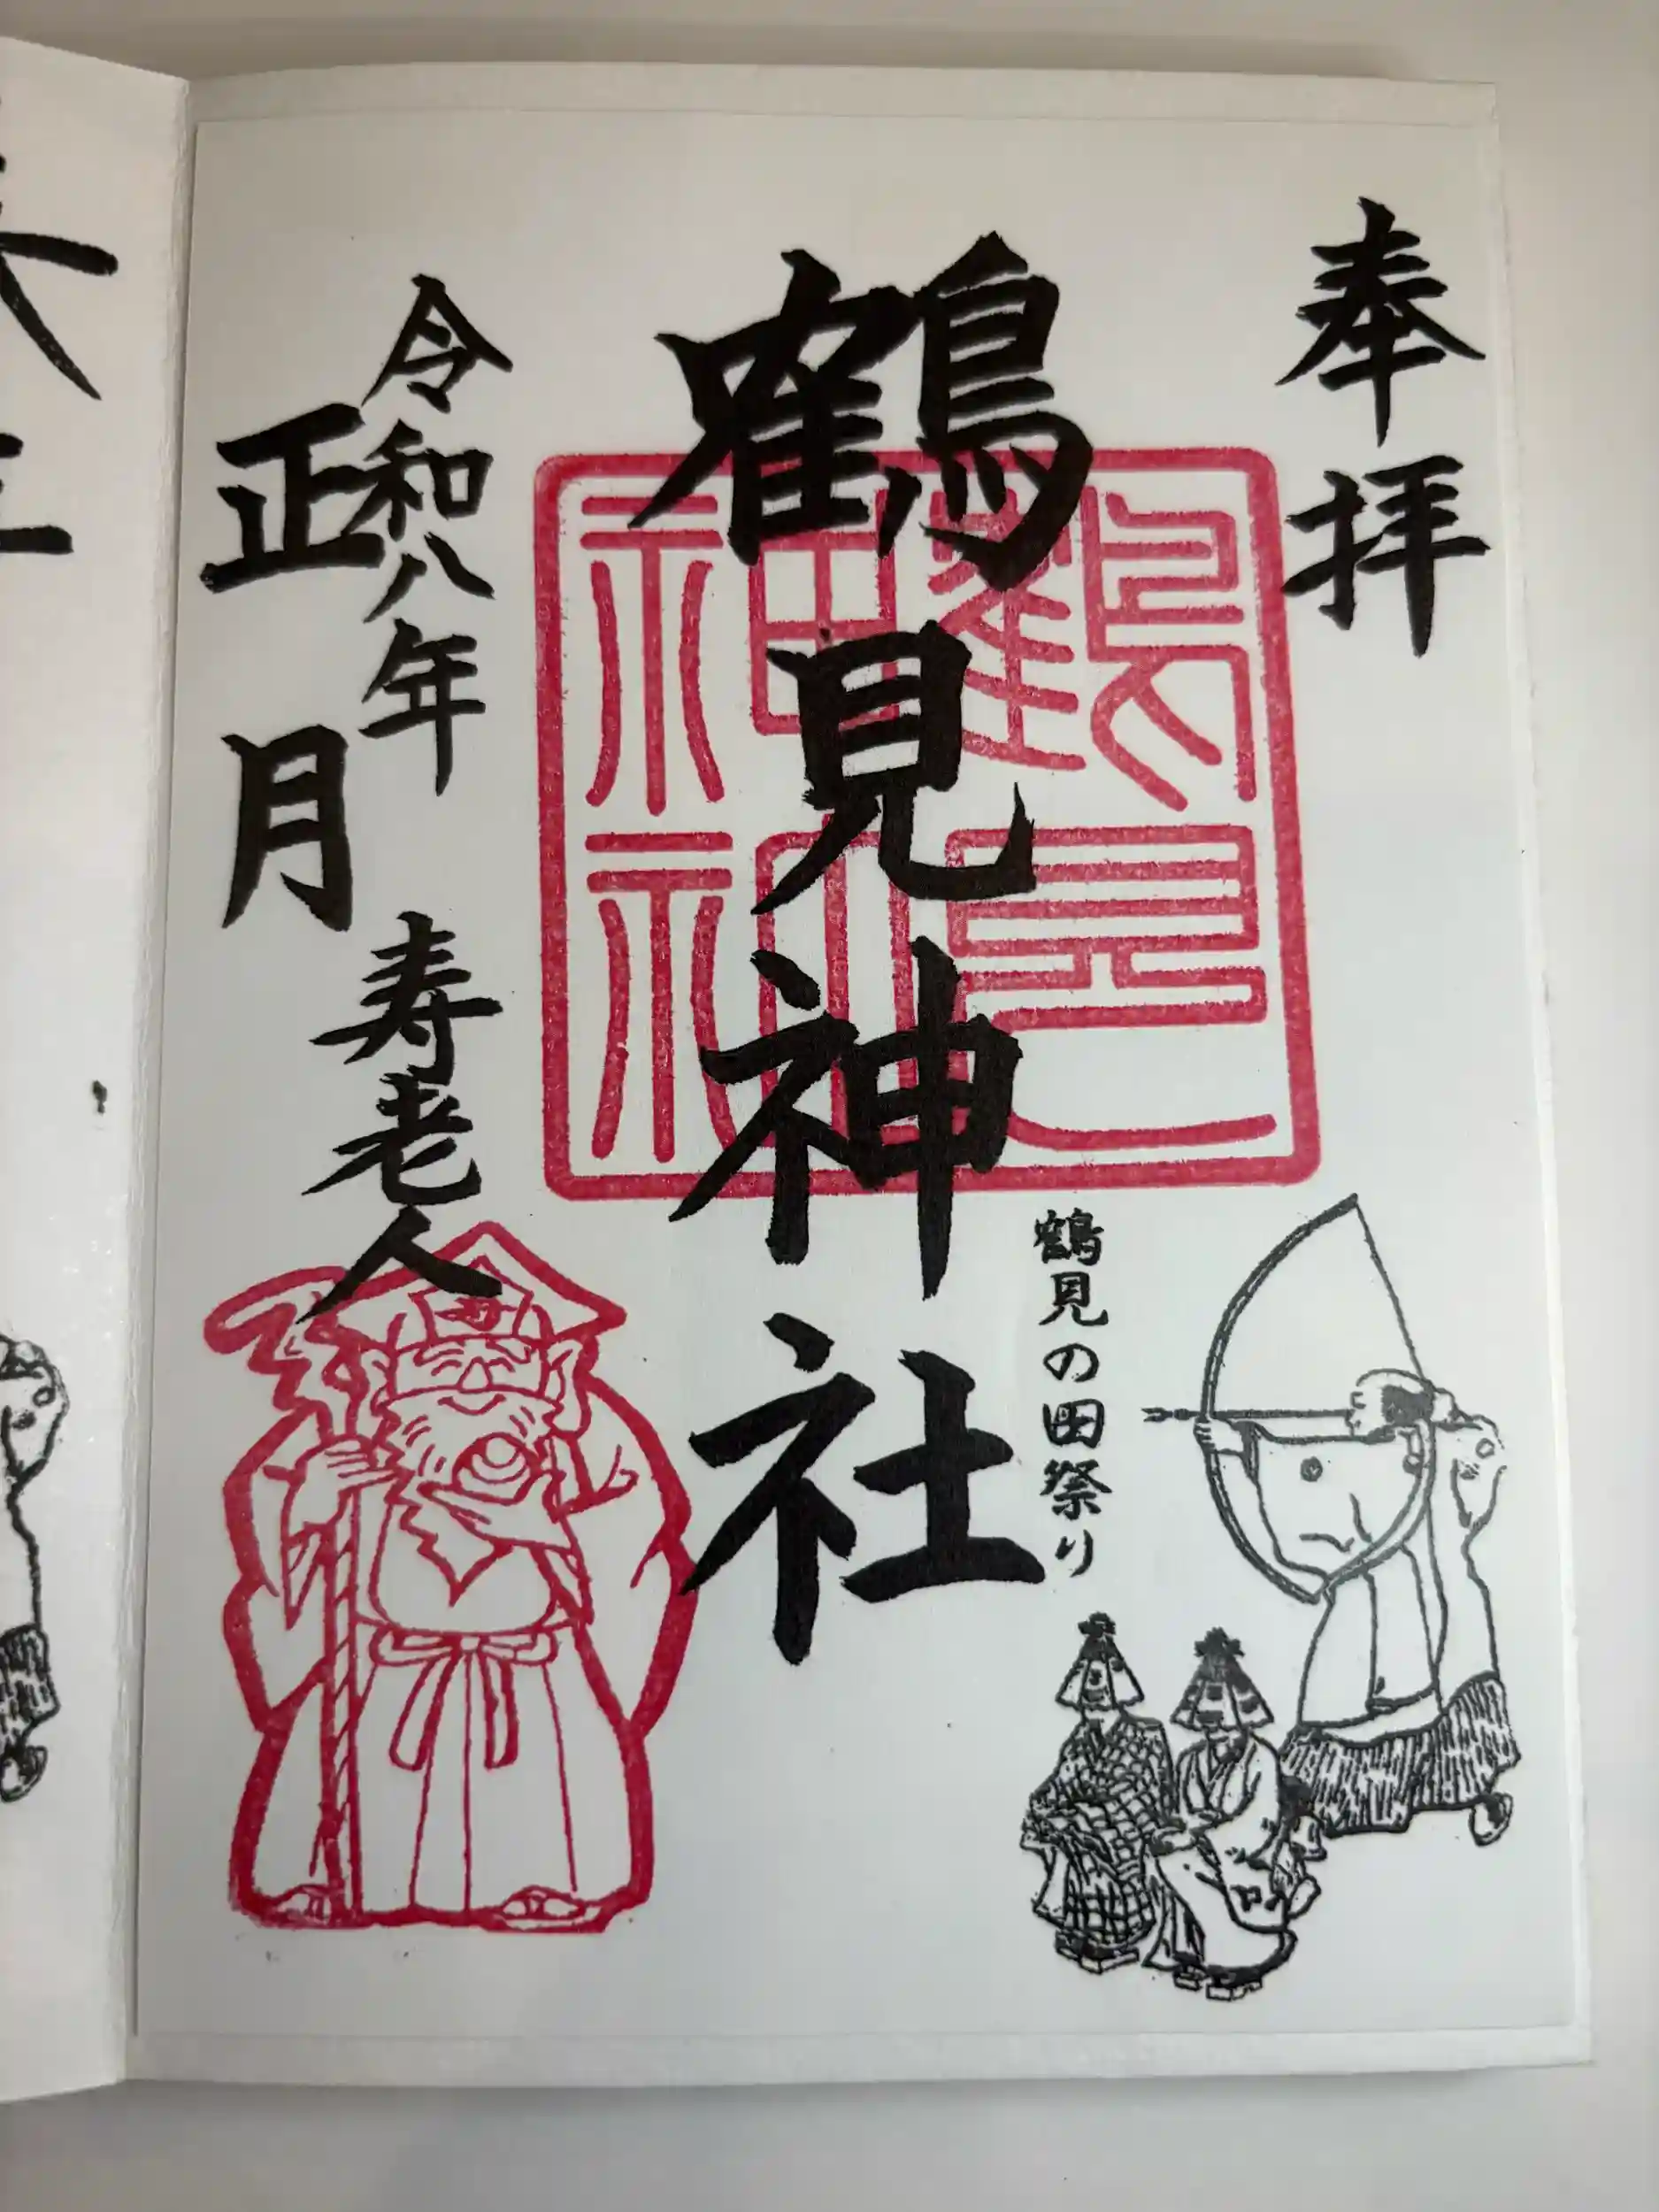 奉拝
鶴見神社
鶴見神社
鶴見の田祭り
令和八年
正月
寿老人